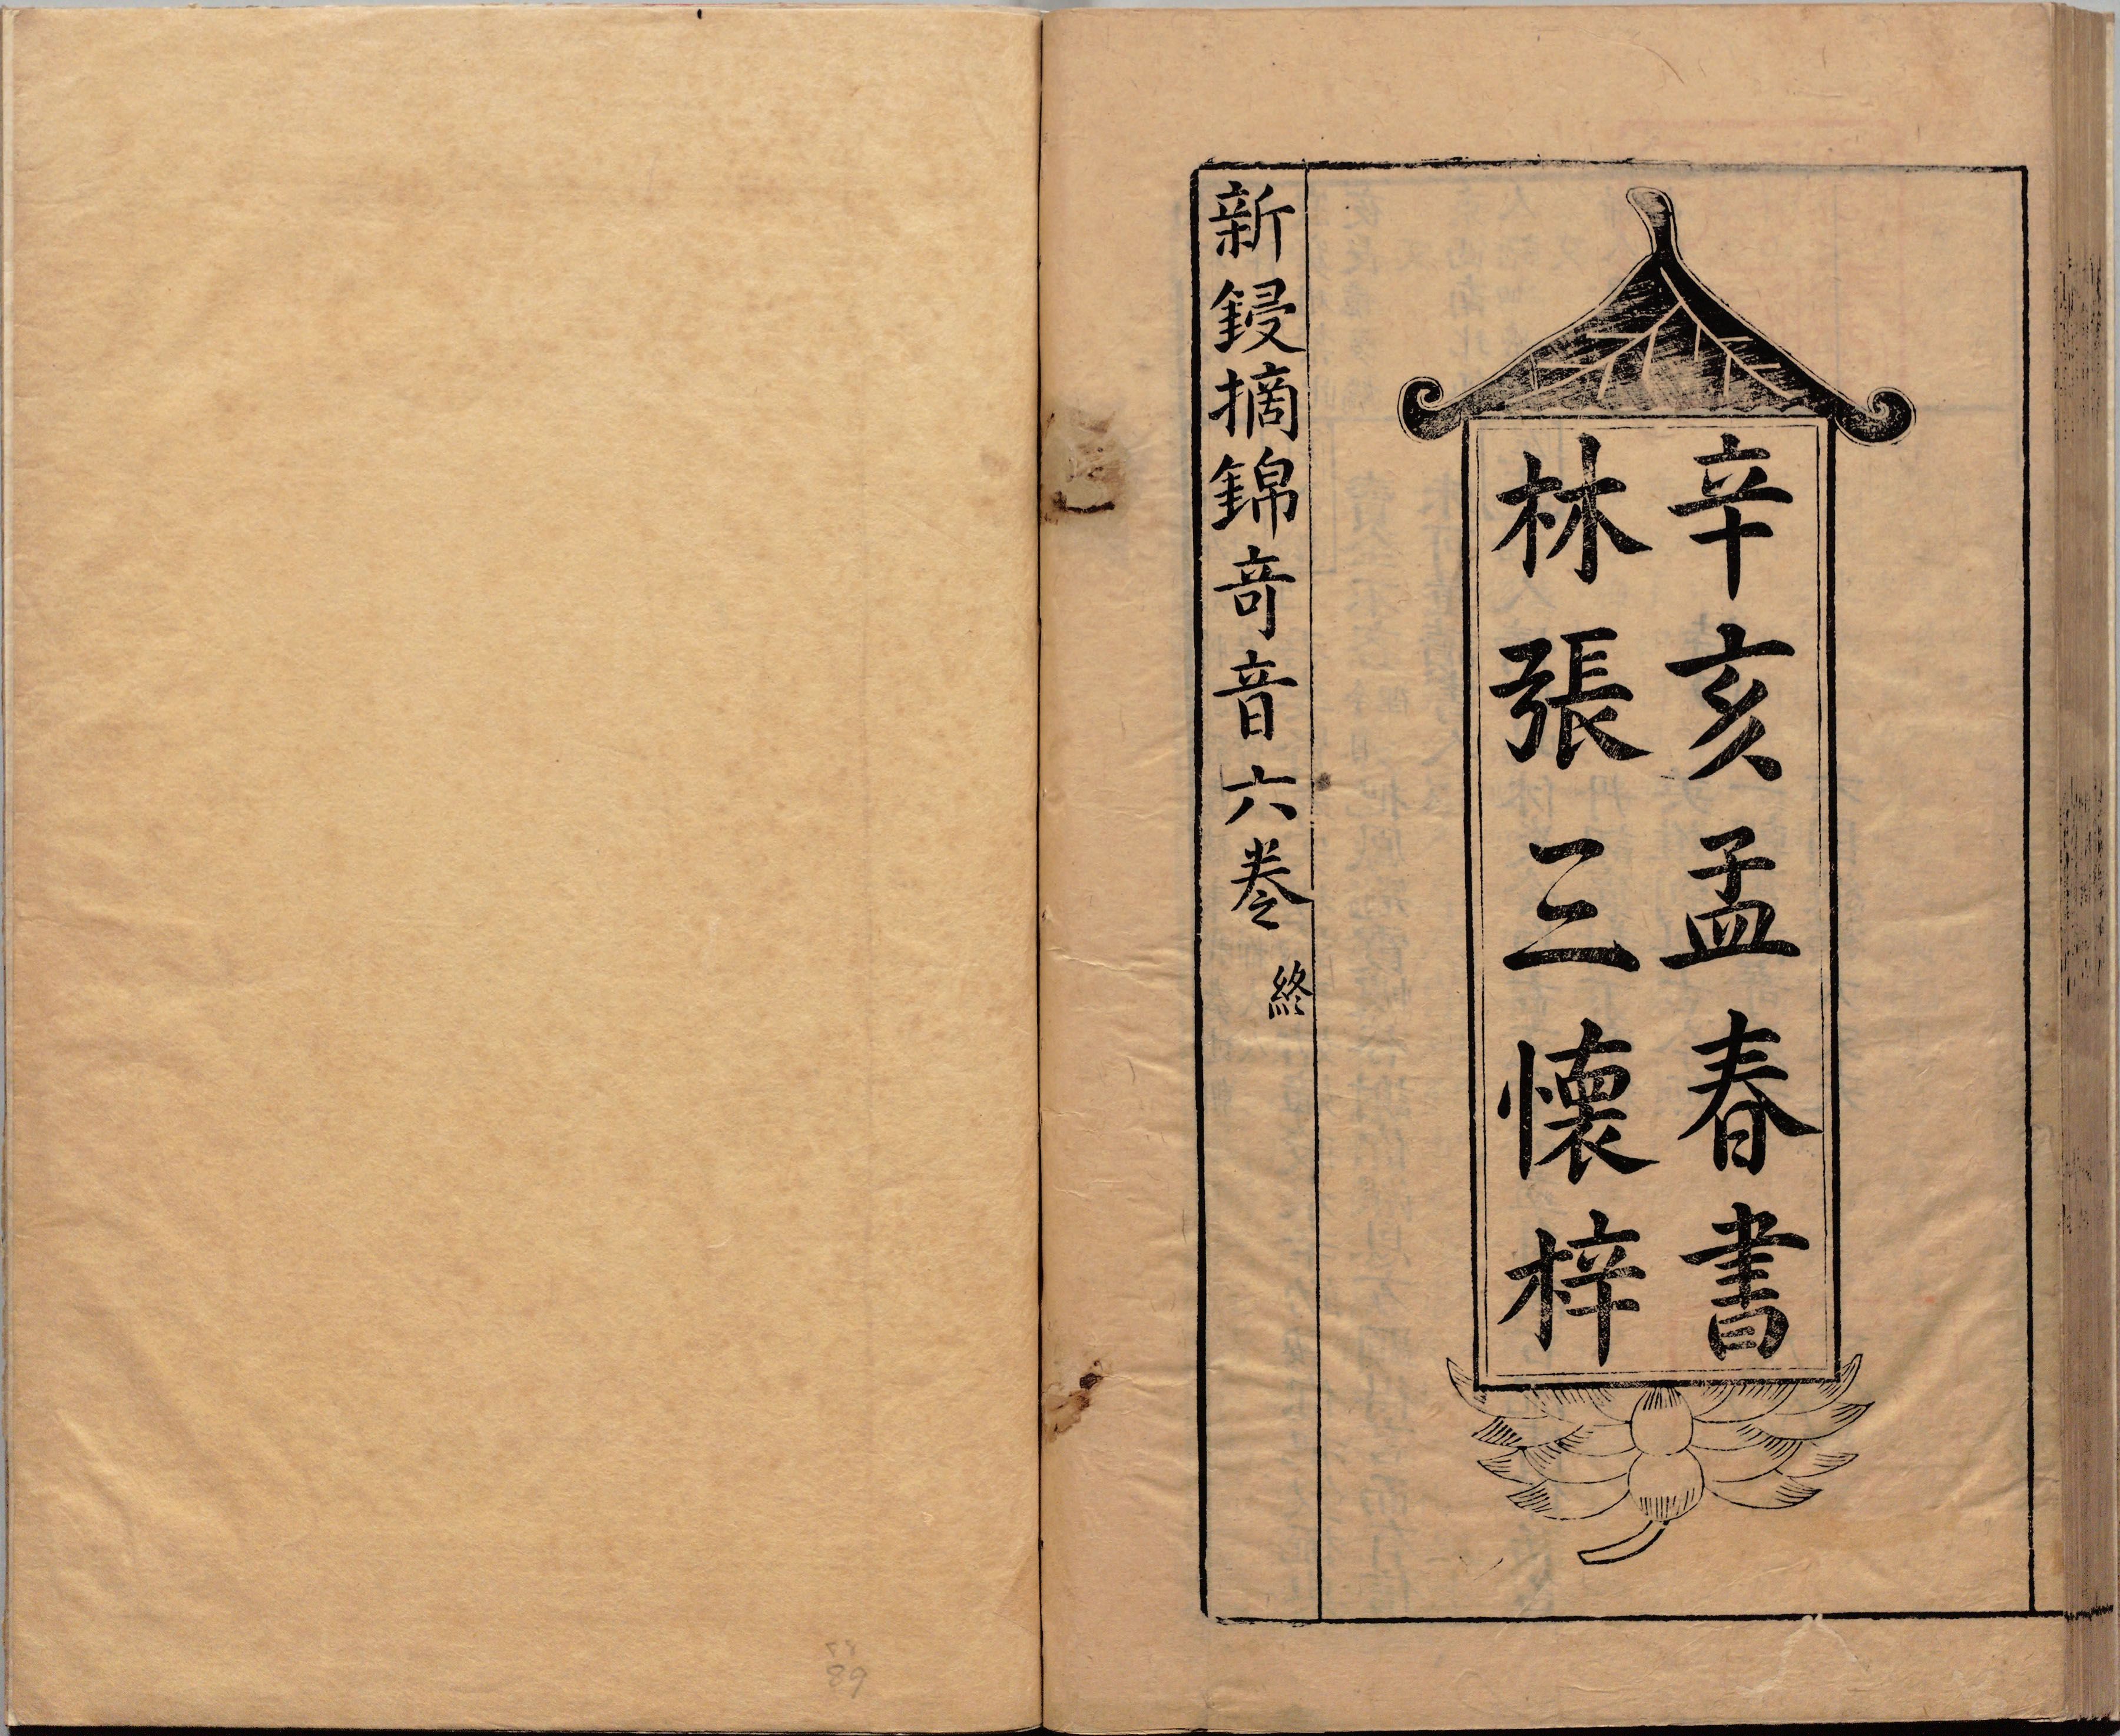 辛亥孟春書
林張三懷梓
新鋟摘錦奇音六卷 終
89